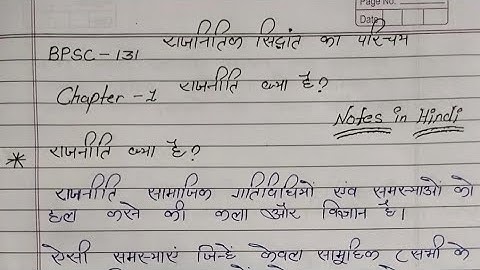 Page No.
Date
राजनितिक सिद्धांत का परिचय
BPSC-131
Chapter-1 राजनीति क्या है?
Notes in Hindi
* राजनीति क्या है?
राजनीति सामाजिक गतिविधियों एंव समस्याओं को
हल करने की कला और विज्ञान है।
ऐसी समस्याएं जिन्हें केवल सामुहिक (सभी के